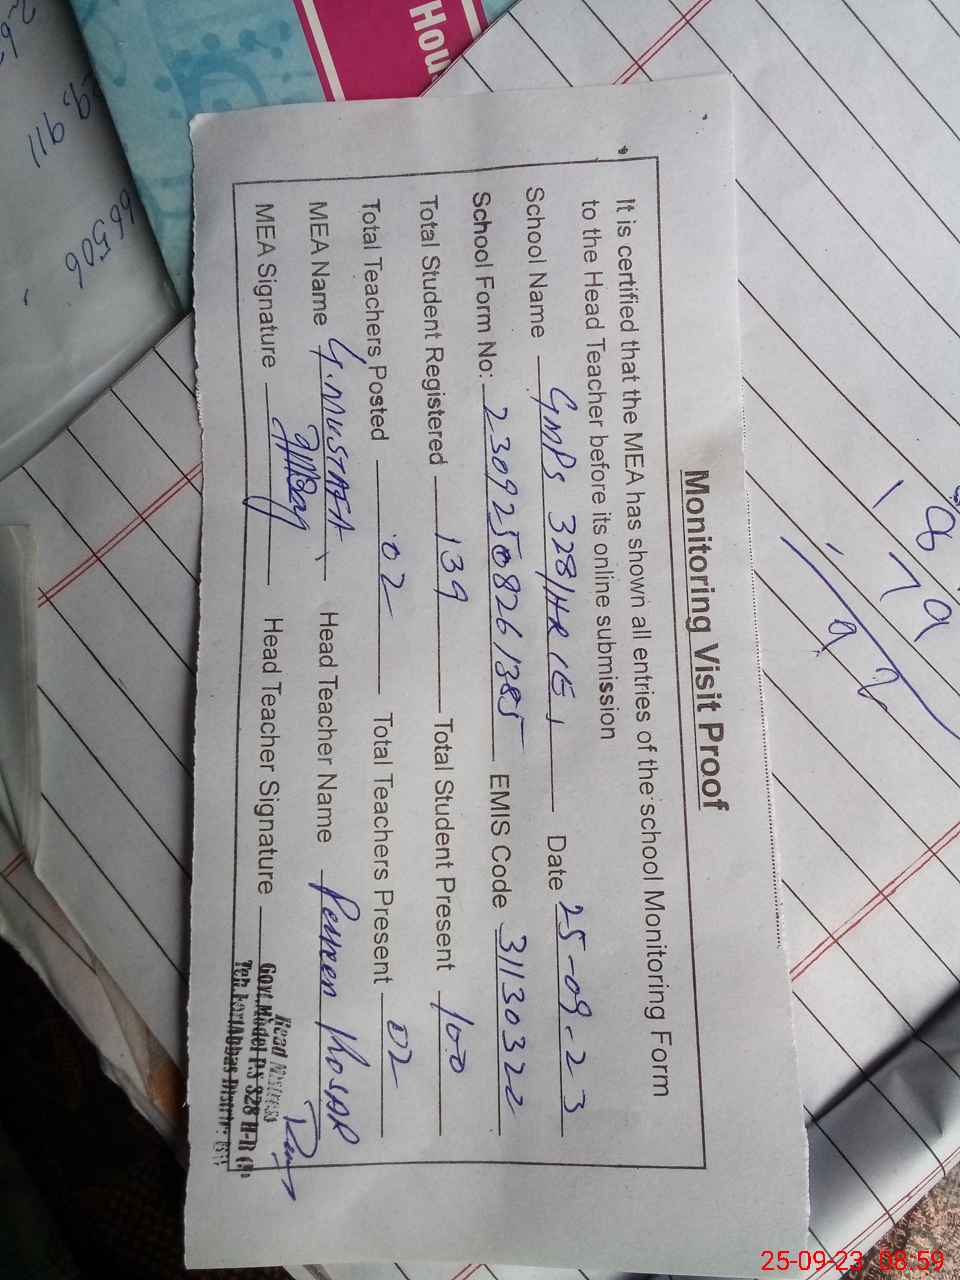 Monitoring Visit Proof
It is certified that the MEA has shown all entries of the school Monitoring Form
to the Head Teacher before its online submission
School Name GMPS 328/HR (E) Date 25-09-23
School Form No: 23092508261385 EMIS Code 31130322
Total Student Registered 139 Total Student Present 100
Total Teachers Posted 02 Total Teachers Present 02
MEA Name G.MUSTAFA Head Teacher Name KOSAR
MEA Signature Head Teacher Signature
Head Mistress
Govt. Model P.S 328 H-R
Hou
66506
25-09-23 08:59